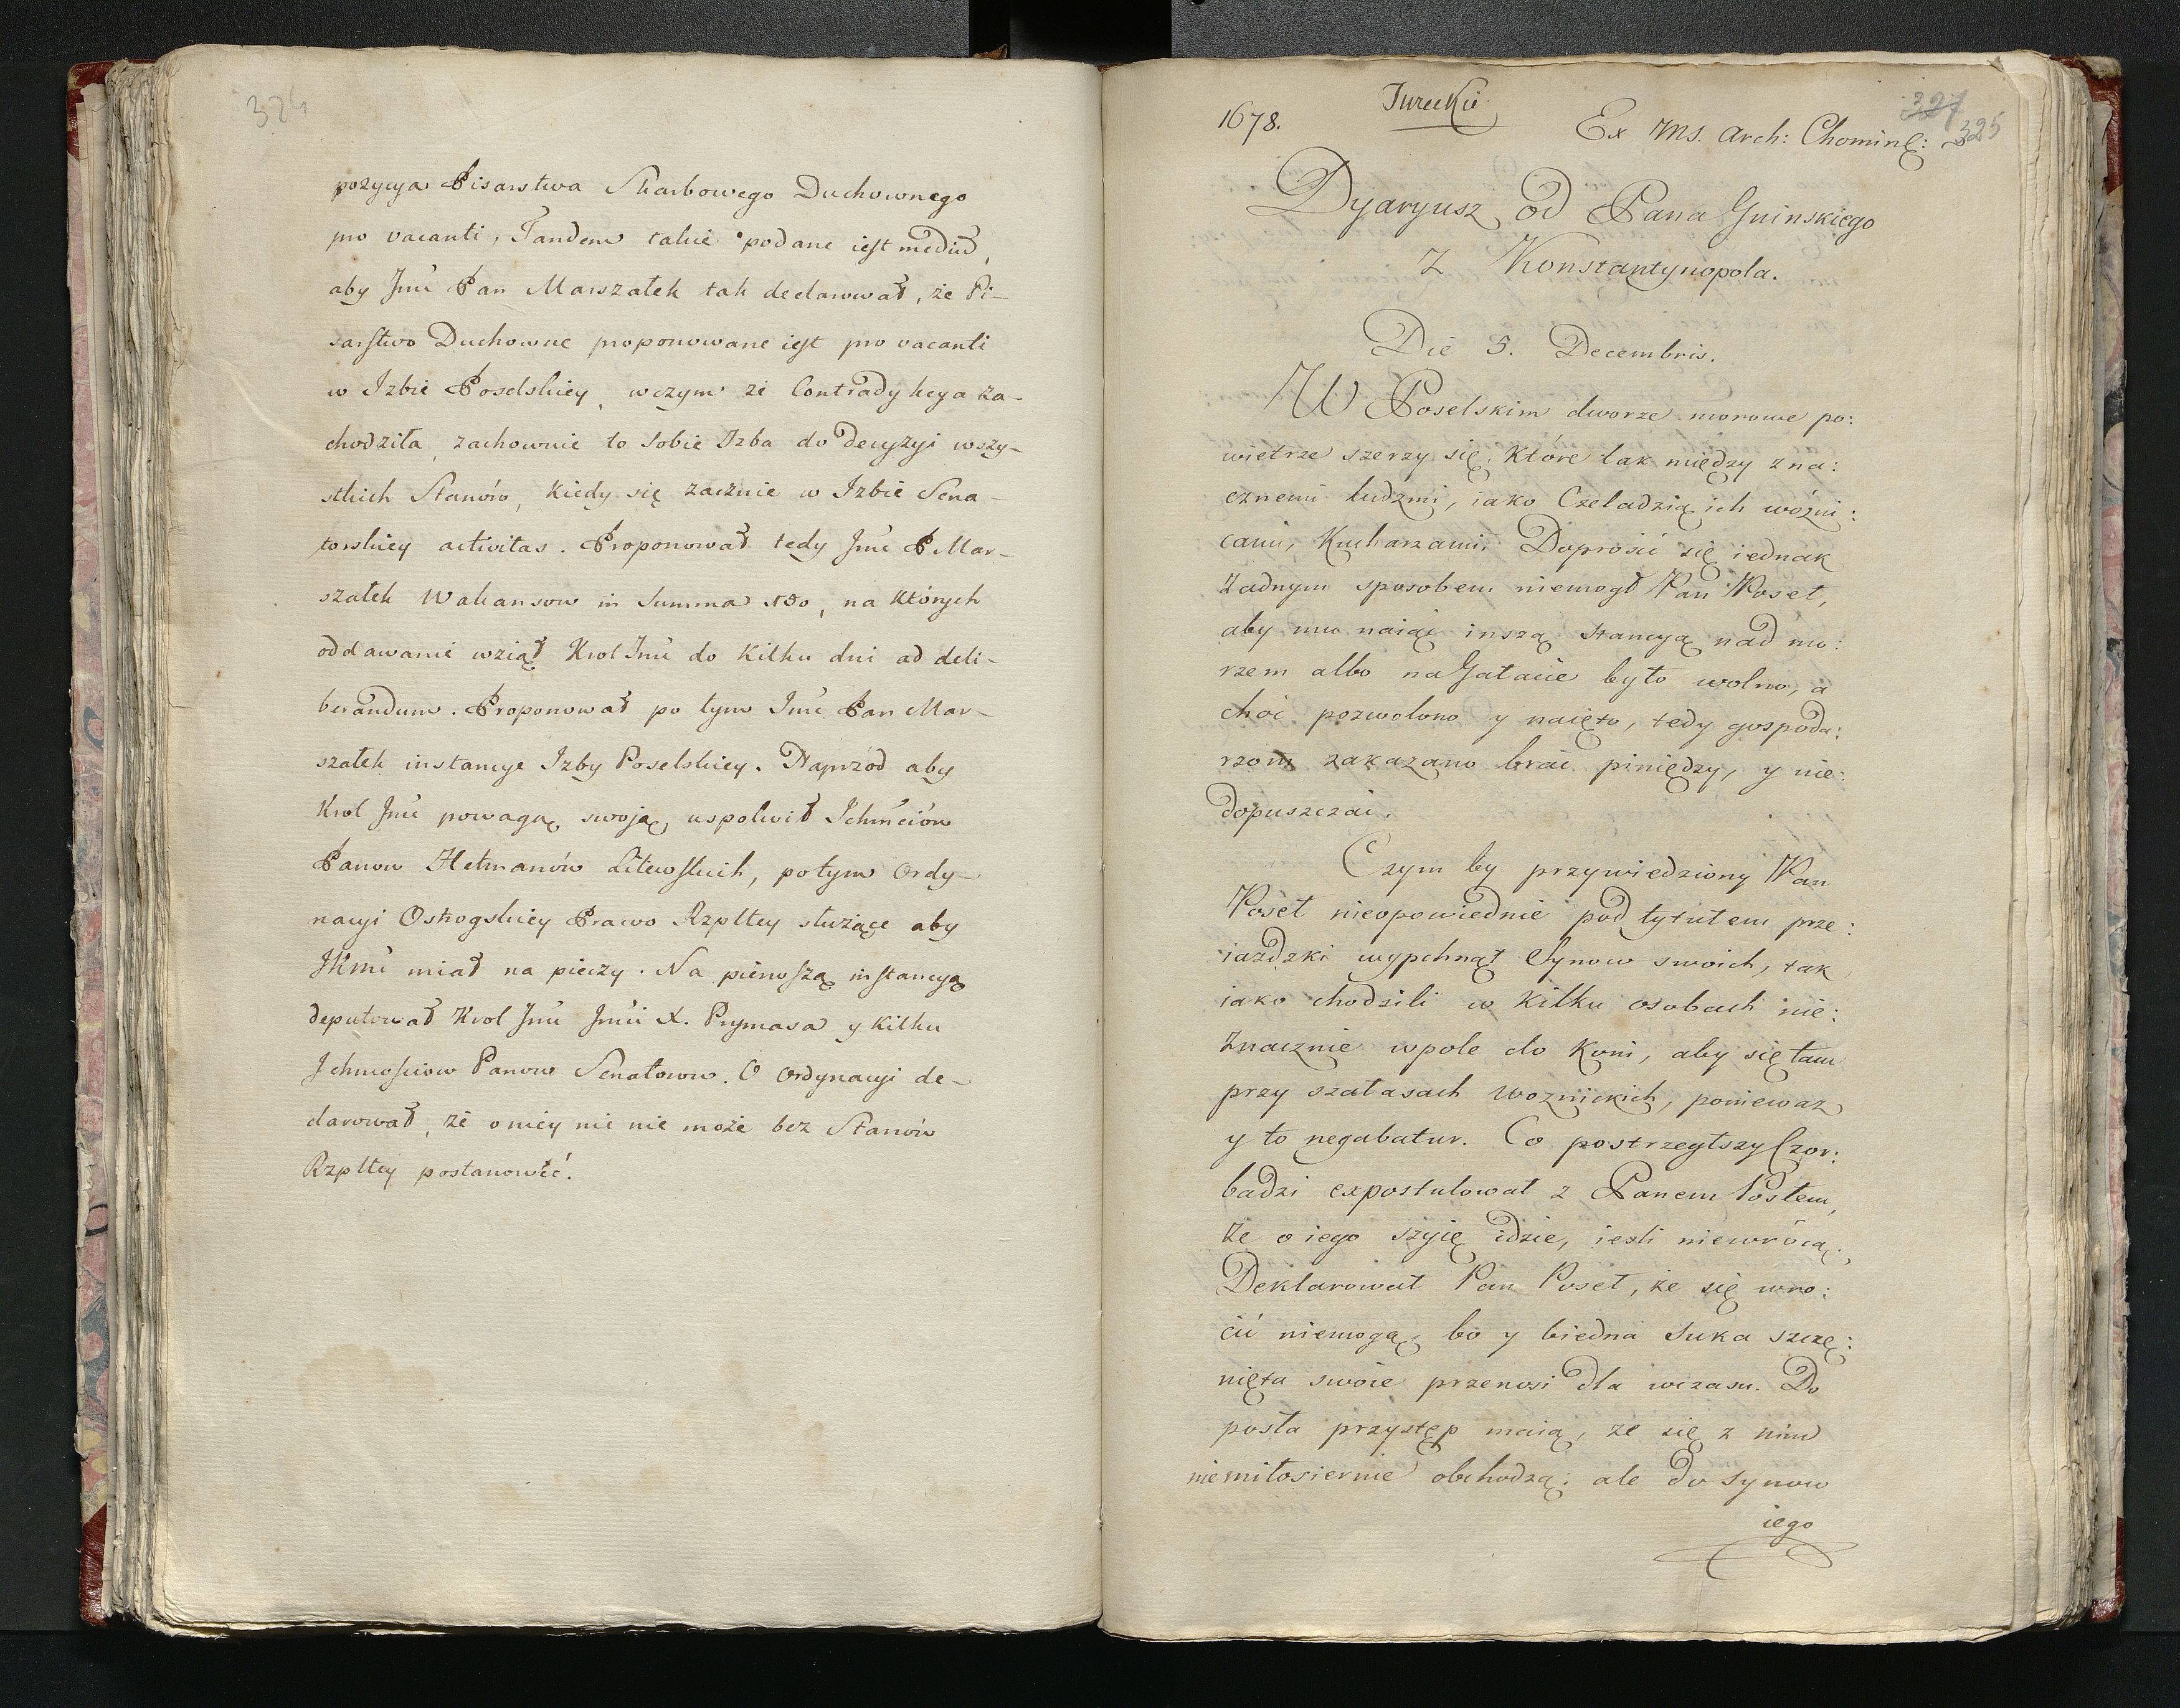 324
pozycya Pisarstwa Skarbowego Duchownego
pro vacanti, Tandem takie podane iest mediũ,
aby Jmć Pan Marszałek tak declarował, że Pi-
sarstwo Duchowne proponowane iest pro vacanti
w Izbie Poselskiey, wczym że Contradykcya za-
chodziła, zachownie to Sobie Izba do Decyzyi wszy-
stkich Stanów, kiedy się zacznie w Izbie Sena-
torskiey activitas. Proponował tedy Jmć P Mar-
szałek Wakansow in Summa 180, na których
oddawanie wziął Krol Jmć do kilku dni ad deli-
berandum. Proponował po tym Jmć Pan Mar-
szałek instancye Izby Poselskiey. Naprzód aby
Krol Jmć powagą swoją uspokoił Ichmćiów
Panow Hetmanów Litewskich, potym Ordy-
nacyi Ostrogskiey Prawo Rzpltey służące aby
JKmć miał na pieczy. Na pierwszą instancyą
deputował Krol Jmć Jmći X. Prymasa y kilku
Ichmościow Panow Senatorow. O Ordynacyi de-
clarował, że o niey nic nie może bez Stanów
Rzpltey postanowić.
1678.
Tureckie
327
Ex MS. Arch: Chominс: 325
Dyaryusz od Pana Gninskiego
z Konstantynopola.
Die 5. Decembris.
W Poselskim dworze morowe po:
wietrze szerzy się, które tak między zna:
cznemi ludzmi, iako Czeladzią ich woźni:
cami, Kucharzami. Doprosić się iednak
żadnym sposobem niemogł Pan Poseł,
aby mu naiąć inszą stancyą nad mo:
rzem albo na Galacie było wolno, a
choć pozwolono y naięto, tedy gospoda:
rzom zakazano brać piniędzy, y nie:
dopuszczać.
Czym by przywiedziony Pan
Poseł nieopowiednie pod tytułem prze:
iazdzki wypchnął Synow swoich, tak
iako chodzili w kilku osobach nie:
znacznie wpole do koni, aby się tam
przy szałasach woznickich, poniewaz
y to negabatur. Co postrzegłszy Czor:
badzi expostulował z Panem Posłem,
że o iego szyię idzie, iesli niewrócą.
Deklarował Pan Poseł, że się wro:
cić niemogą, bo y biedna suka szczę:
nięta swoie przenosi dla wczasu. Do
posła przystęp maią, że się z nim
niemiłosiernie obchodzą; ale do synow
iego